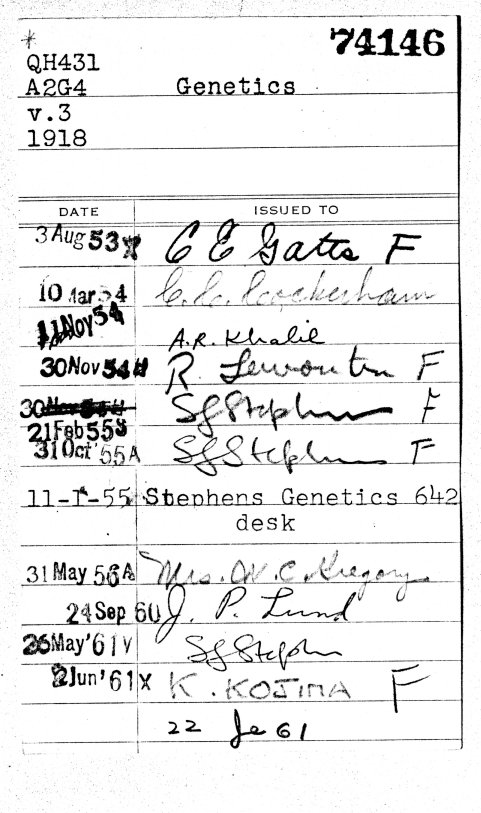 * 74146
QH431
A2G4 Genetics
v.3
1918
DATE ISSUED TO
3 Aug 53 C E Gatts F
10 Mar 54 C. C. Cockerham
11 Nov 54 A.R. Khalil
30 Nov 54 R. Lewontin F
30 Nov 54 SGStephens F
21 Feb 55
31 Oct '55 A SGStephens F
11-1-55 Stephens Genetics 642
desk
31 May 56 A Mrs. W. C. Gregory
24 Sep 60 J. P. Lund
26 May '61 V SGStephens
2 Jun '61 X K. KOJIMA F
22 Je 61